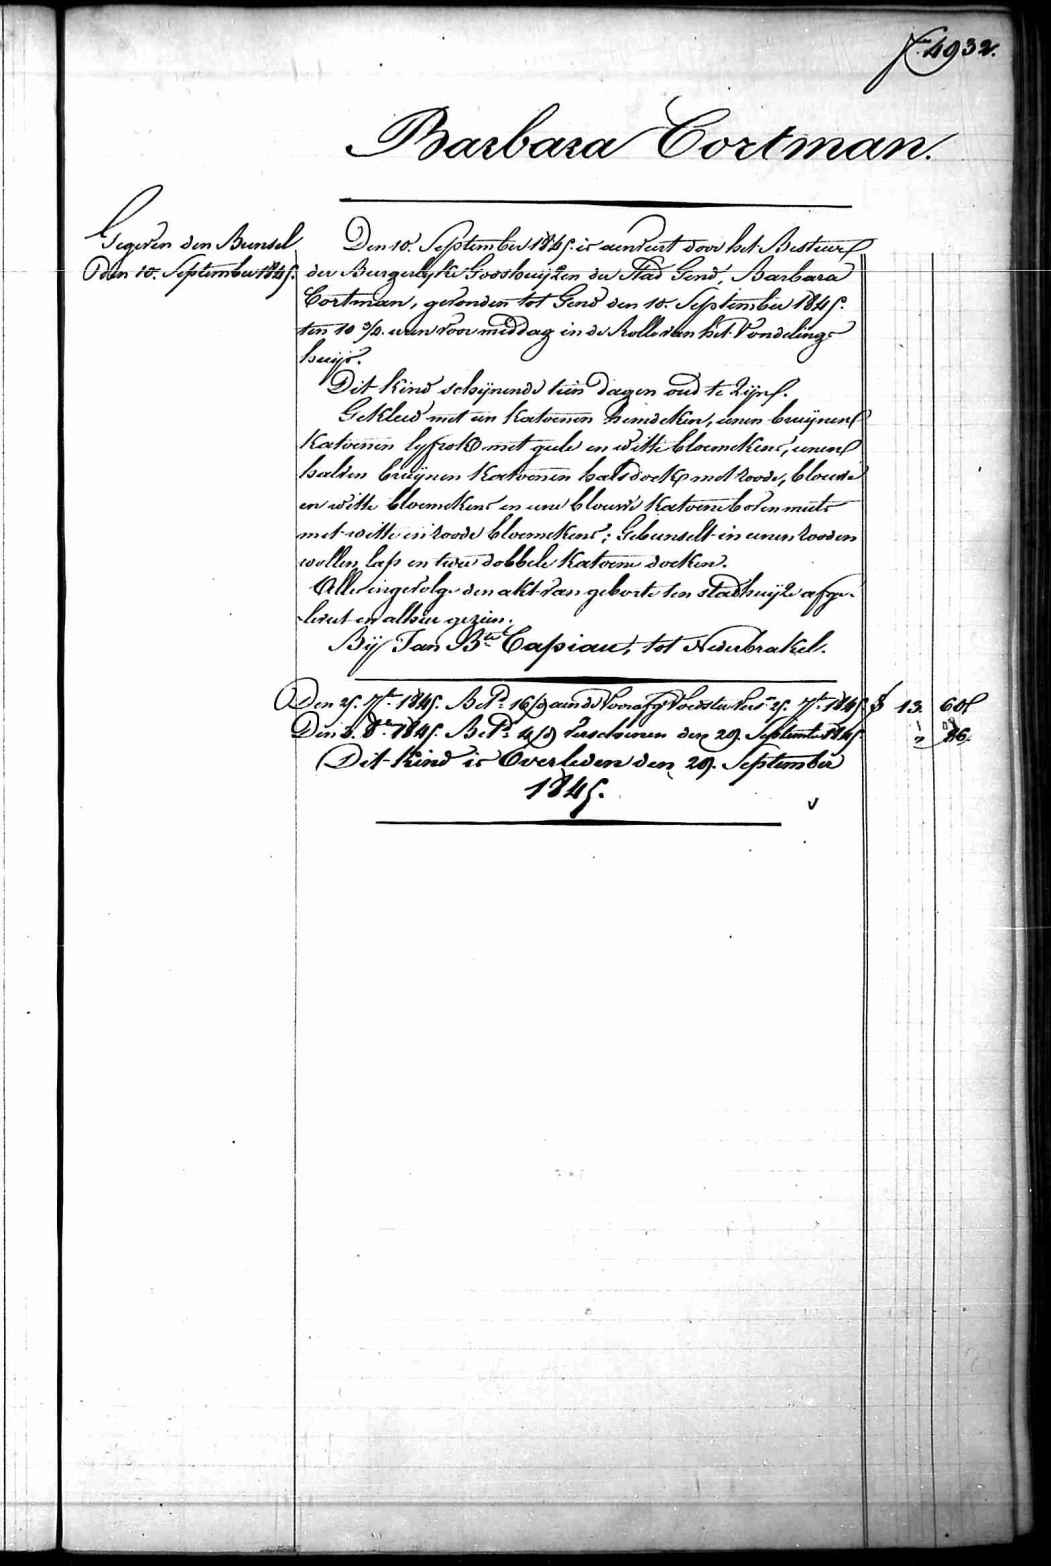 F. 4932.
Barbara Cortman.
Gegeven den Bunsel
den 10. September 1845.
Den 10. September 1845. is aenveert door het Bestuur
der Burgerlyke Godshuijzen der Stad Gend, Barbara
Cortman, gevonden tot Gend den 10. September 1845.
ten 10 3/4 uren voor middag in de Rolle van het Vondeling-
huijs.
Dit kind schijnende tien dagen oud te zijn.
Gekleed met een katoenen hemdeken, eenen bruijnen
katoenen lyfrok met geele en witte bloemekens, eenen
halven bruijnen katoenen halsdoek met roode, blouwe
en witte bloemekens en eene blouwe katoene boven muts
met witte en roode bloemekens; Gebunselt in eenen rooden
wollen lap en twee dobbele katoene doeken.
Alles ingevolge den akt van geboorte ten stadhuijze afge-
levert en alhier gezien.
Bij Jan Bte Capiau, tot Nederbrakel.
Den 25. 7bre 1845. Bet. 16 aen de Voorafg 25. 7bre 1845 13. 60
Den 3. 8bre 1845. Bet. 4 verschenen den 29. September 1845 " 86.
Dit kind is Overleden den 29. September
1845.